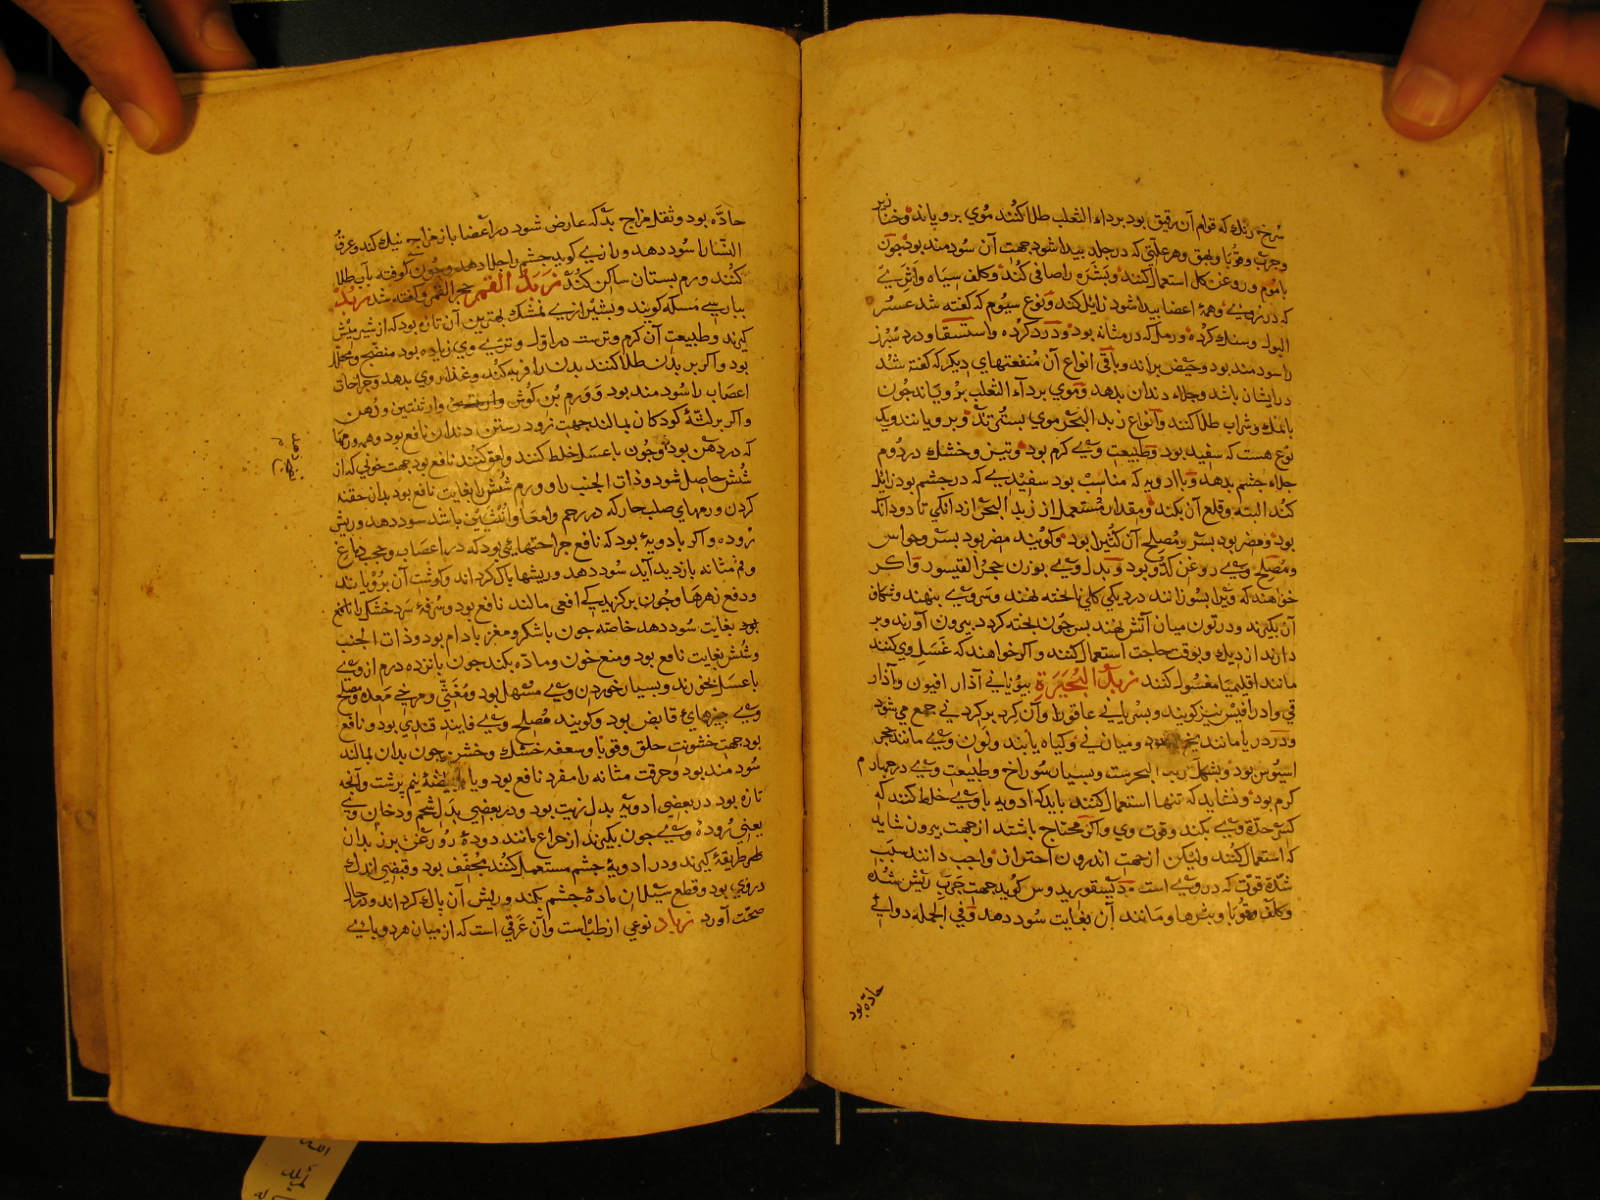 سرخ رنك كه قوام آن رقيق بود بر داء الثعلب طلا كنند موي بروياند وخنازير
وجرب وقوبا وبهق وهر علتي كه در جلد پيدا شود جهت آن سودمند بود چون
با موم وروغن كل استعمال كنند وبشره را صافي كند وكلف سياه واثري
كه در روي وهمهٔ اعضا پيدا شود زايل كند ونوع سيوم كه كفته شد عسر
البول وسنك كرده ورمل كه در مثانه بود ودرد كرده واستسقا ودرد سپرز
را سودمند بود وحيض براند وباقي انواع آن منفعتهاي ديكر كه كفته شد
در ايشان باشد وجلاء دندان بدهد وموي بر داء الثعلب بروياند چون
با نمك وشراب طلا كنند وانواع زبد البحر موي بسترند وبرويانند ويك
نوع هست كه سفيد بود وطبيعت وي كرم بود وتيز وخشك در دوم
جلاء چشم بدهد وبا ادويه كه مناسب بود سفيديي كه در چشم بود زايل
كند البته وقلع آن بكند ومقدار مستعمل از زبد البحر از دانكي تا دو دانك
بود ومضر بود بسر ومصلح آن كثيرا بود وكويند مضر بود بسر وحواس
ومصلح وي روغن كدو بود وبدل وي بوزن حجر القيسور واكر
خواهند كه ويرا بسوزانند در ديكي كلي نا پخته نهند وسر وي بنهند
آن بكيرند ودر تون ميان آتش نهند پس چون پخته كردد بيرون آورند وبر
دارند از ديك وبوقت حاجت استعمال كنند واكر خواهند كه غسل وي كنند
مانند اقليميا مغسول كنند زبد البحيرة بيوناني آذار افيون وآذار
قي وادرافيس نيز كويند وبسرياني عاقورا وآن كرد بر كرد ني جمع مي شود
ودر دريا مانند يخ بود وميان ني وكياه يابند ولون وي مانند حجر
اسيوس بود وبشكل زبد البحرست وبسيار سوراخ وطبيعت وي در چهارم
كرم بود ونشايد كه تنها استعمال كنند بايد كه ادويه با وي خلط كنند كه
كسر حدة وي بكند وقوت وي واكر محتاج باشند از جهت بيرون شايد
كه استعمال كنند وليكن از جهت اندرون احتراز واجب دانند سبب
شدّة قوت كه در وي است ديسقوريدوس كويد جهت جرب ريش شده
وكلف وقوبا وبثرها ومانند آن بغايت سود دهد وفي الجمله دوائي
حادّه بود
حادّه بود وثقل مزاج بد كه عارض شود در اعضا باز مزاج نيك كند وعرق
النسا را سود دهد ورازي كويد چشم را جلا دهد وچون كوفته بآب طلا
كنند ورم پستان ساكن كند زبد القمر حجر القمر وكفته شد زبد
بپارسي مسكه كويند وبشيرازي نمشك بهترين آن تازه بود كه از شير ميش
كيرند وطبيعت آن كرم وترست در اول وتري وي زياده بود منضج ومحلل
بود واكر بر بدن طلا كنند بدن را فربه كند وغذا روي بدهد وجراحات
اعصاب را سودمند بود وورم بن كوش وارنبتين ودهن
واكر بر لثهٔ كودكان بمالند جهت زود رستن دندان نافع بود وهمه ورمها
كه در دهن بود وچون با عسل خلط كنند ولعق كنند نافع بود جهت خوني كه از
شش حاصل شود وذات الجنب را وورم شش را بغايت نافع بود بدان حقنه
كردن ورمهاي صلب حار كه در رحم وامعا وانثيين باشد سود دهد وريش
روده واكر با ادويهٔ بود كه نافع جراحتهائي بود كه در اعصاب وحجب دماغ
وفم مثانه بازديد آيد سود دهد وريشها پاك كرداند وكوشت آن بروياند
ودفع زهرها وچون بر كزيدكي افعي مالند نافع بود وسرفهٔ سرد خشك را نافع
بود بغايت سود دهد خاصه چون با شكر ومغز بادام بود وذات الجنب
وشش بغايت نافع بود ومنع خون وماده بكند چون پانزده درم از وي
با عسل بخورند وبسيار خوردن وي مسهل بود ومغثي ومرخي معده ومصلح
وي چيزهاي قابض بود وكويند مصلح وي فانيد قندي بود ونافع
بود جهت خشونت حلق وقوبا وسعفه خشك وخشن چون بدان بمالند
سودمند بود وحرقت مثانه را مفرد نافع بود ويا با بيضهٔ نيم برشت وآنچه
تازه بود در بعضي ادويه بدل زيت بود ودر بعضي بدل شحم ودخان وي
يعني رودهٔ وي چون بكيرند از چراغ مانند دودهٔ روغن بزر بدان
طريقه كيرند ودر ادويهٔ چشم مستعمل كنند مجفف بود وقبضي اندك
در وي بود وقطع سيلان مادهٔ چشم بكند وريش آن پاك كرداند ودر حال
صحّت آورد زباد نوعي از طيب است وآن عرقي است كه از ميان هر دو پاي